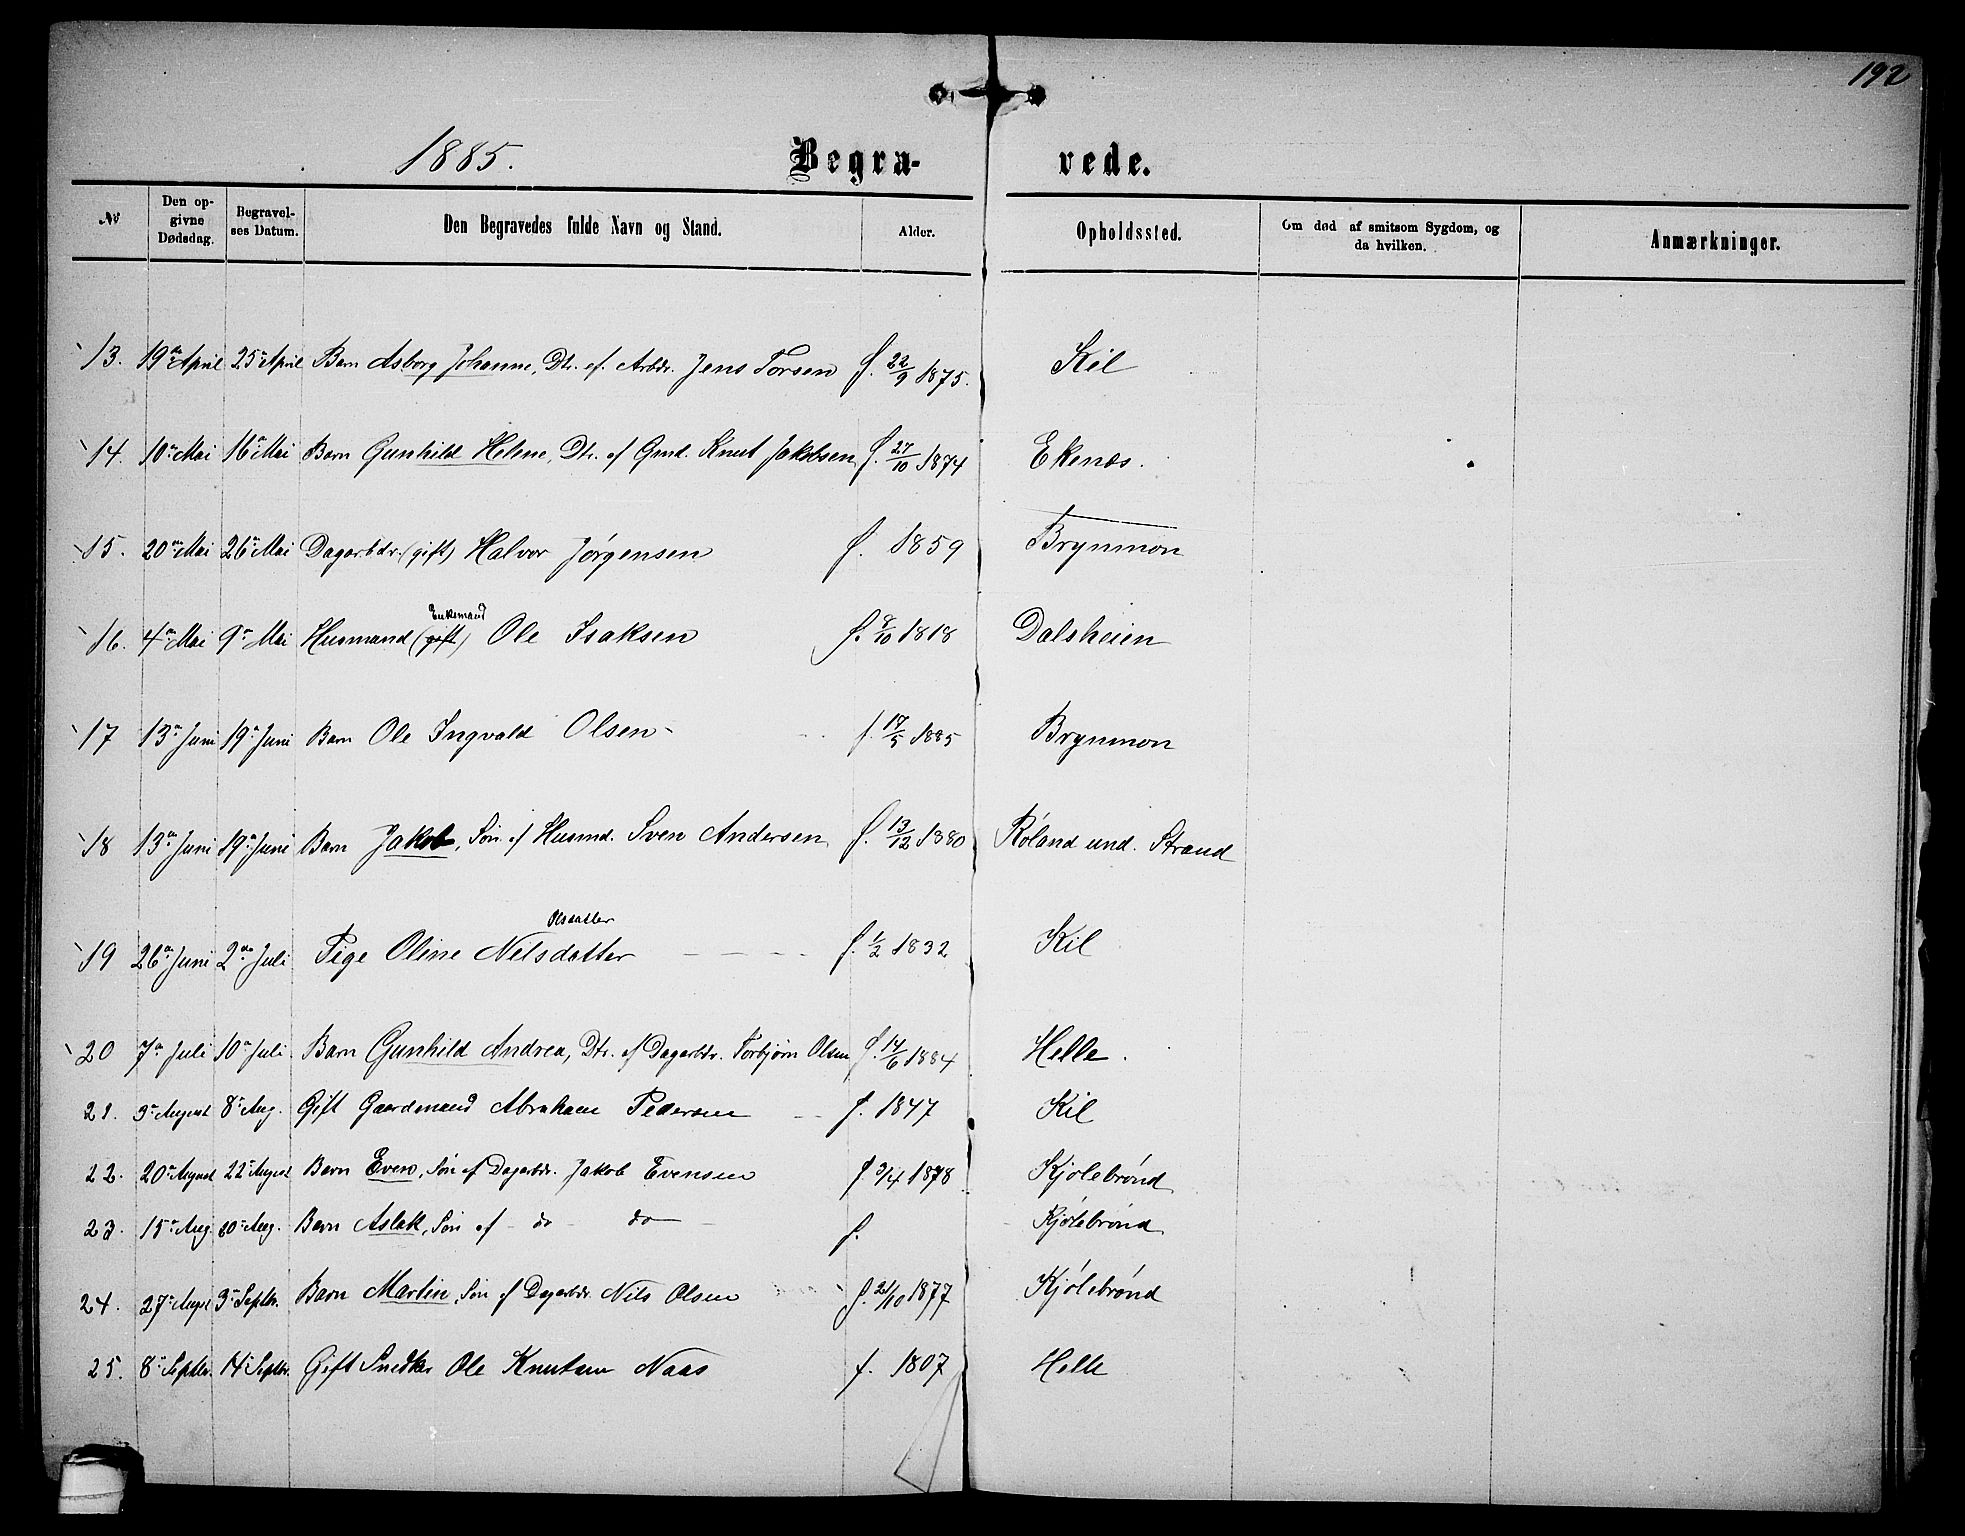 192
1885. Begra- vede.
№ Den opgivne Dødsdag. Begravelses Datum. Den Begravedes fulde Navn og Stand. Alder. Opholdssted. Om død af smitsom Sygdom, og da hvilken. Anmærkninger.
13. 19de April 25de April Barn Asborg Johanne, Dtr. af Arbdr. Jens Torsen f. 22/9 1875. Kil
14. 10de Mai 16de Mai Barn Gunhild Helene, Dtr. af Gmd. Knut Jakobsen f. 27/10 1874 Ekenæs.
15. 20de Mai 26de Mai Dagarbdr. (gift) Halvor Jørgensen f. 1859 Brynmon
16. 4de Mai 9de Mai Husmand (gift) Enkemand Ole Isaksen f. 8/10 1818 Dalsheien
17 13de Juni 19de Juni Barn Ole Ingvald Olsen - f. 17/5 1885 Brynmon
18 13de Juni 19de Juni Barn Jakob, Søn af Husmd. Sven Andersen f. 13/12 1880 Røland und. Strand
19 26de Juni 2den Juli Pige Oline Nilsdatter Olsdatter f. 1/2 1832 Kil
20 7de Juli 10de Juli Barn Gunhild Andrea, Dtr. af Dagarbdr. Torbjørn Olsen f. 14/6 1884 Helle.
21. 3de August 8de Aug. Gift Gaardmand Abraham Pedersen f. 1847 Kil
22. 20de August 22de August Barn Even, Søn af Dagarbdr. Jakob Evensen f. 3/4 1878 Kjølebrønd
23. 15de Aug. Aug. Barn Aslak, Søn af - do - do - f. Kjølebrønd
24. 27de Augst 3de Septbr. Barn Martin, Søn af Dagarbdr. Nils Olsen f. 21/10 1877 Kjølebrønd
25. 8de Septbr. 14de Septbr. Gift Snedker Ole Knutsen Naas f. 1807 Helle